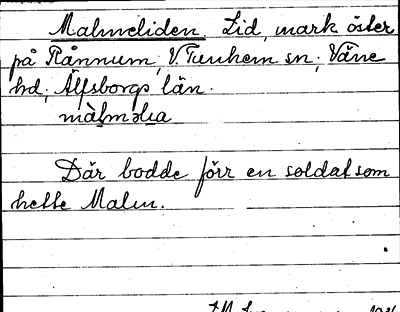 Malmeliden. Lid, mark öster
på Rånnum, V. Tunhem sn, Väne
hd, Älfsborgs län.
Där bodde förr en soldat som
hette Malm.